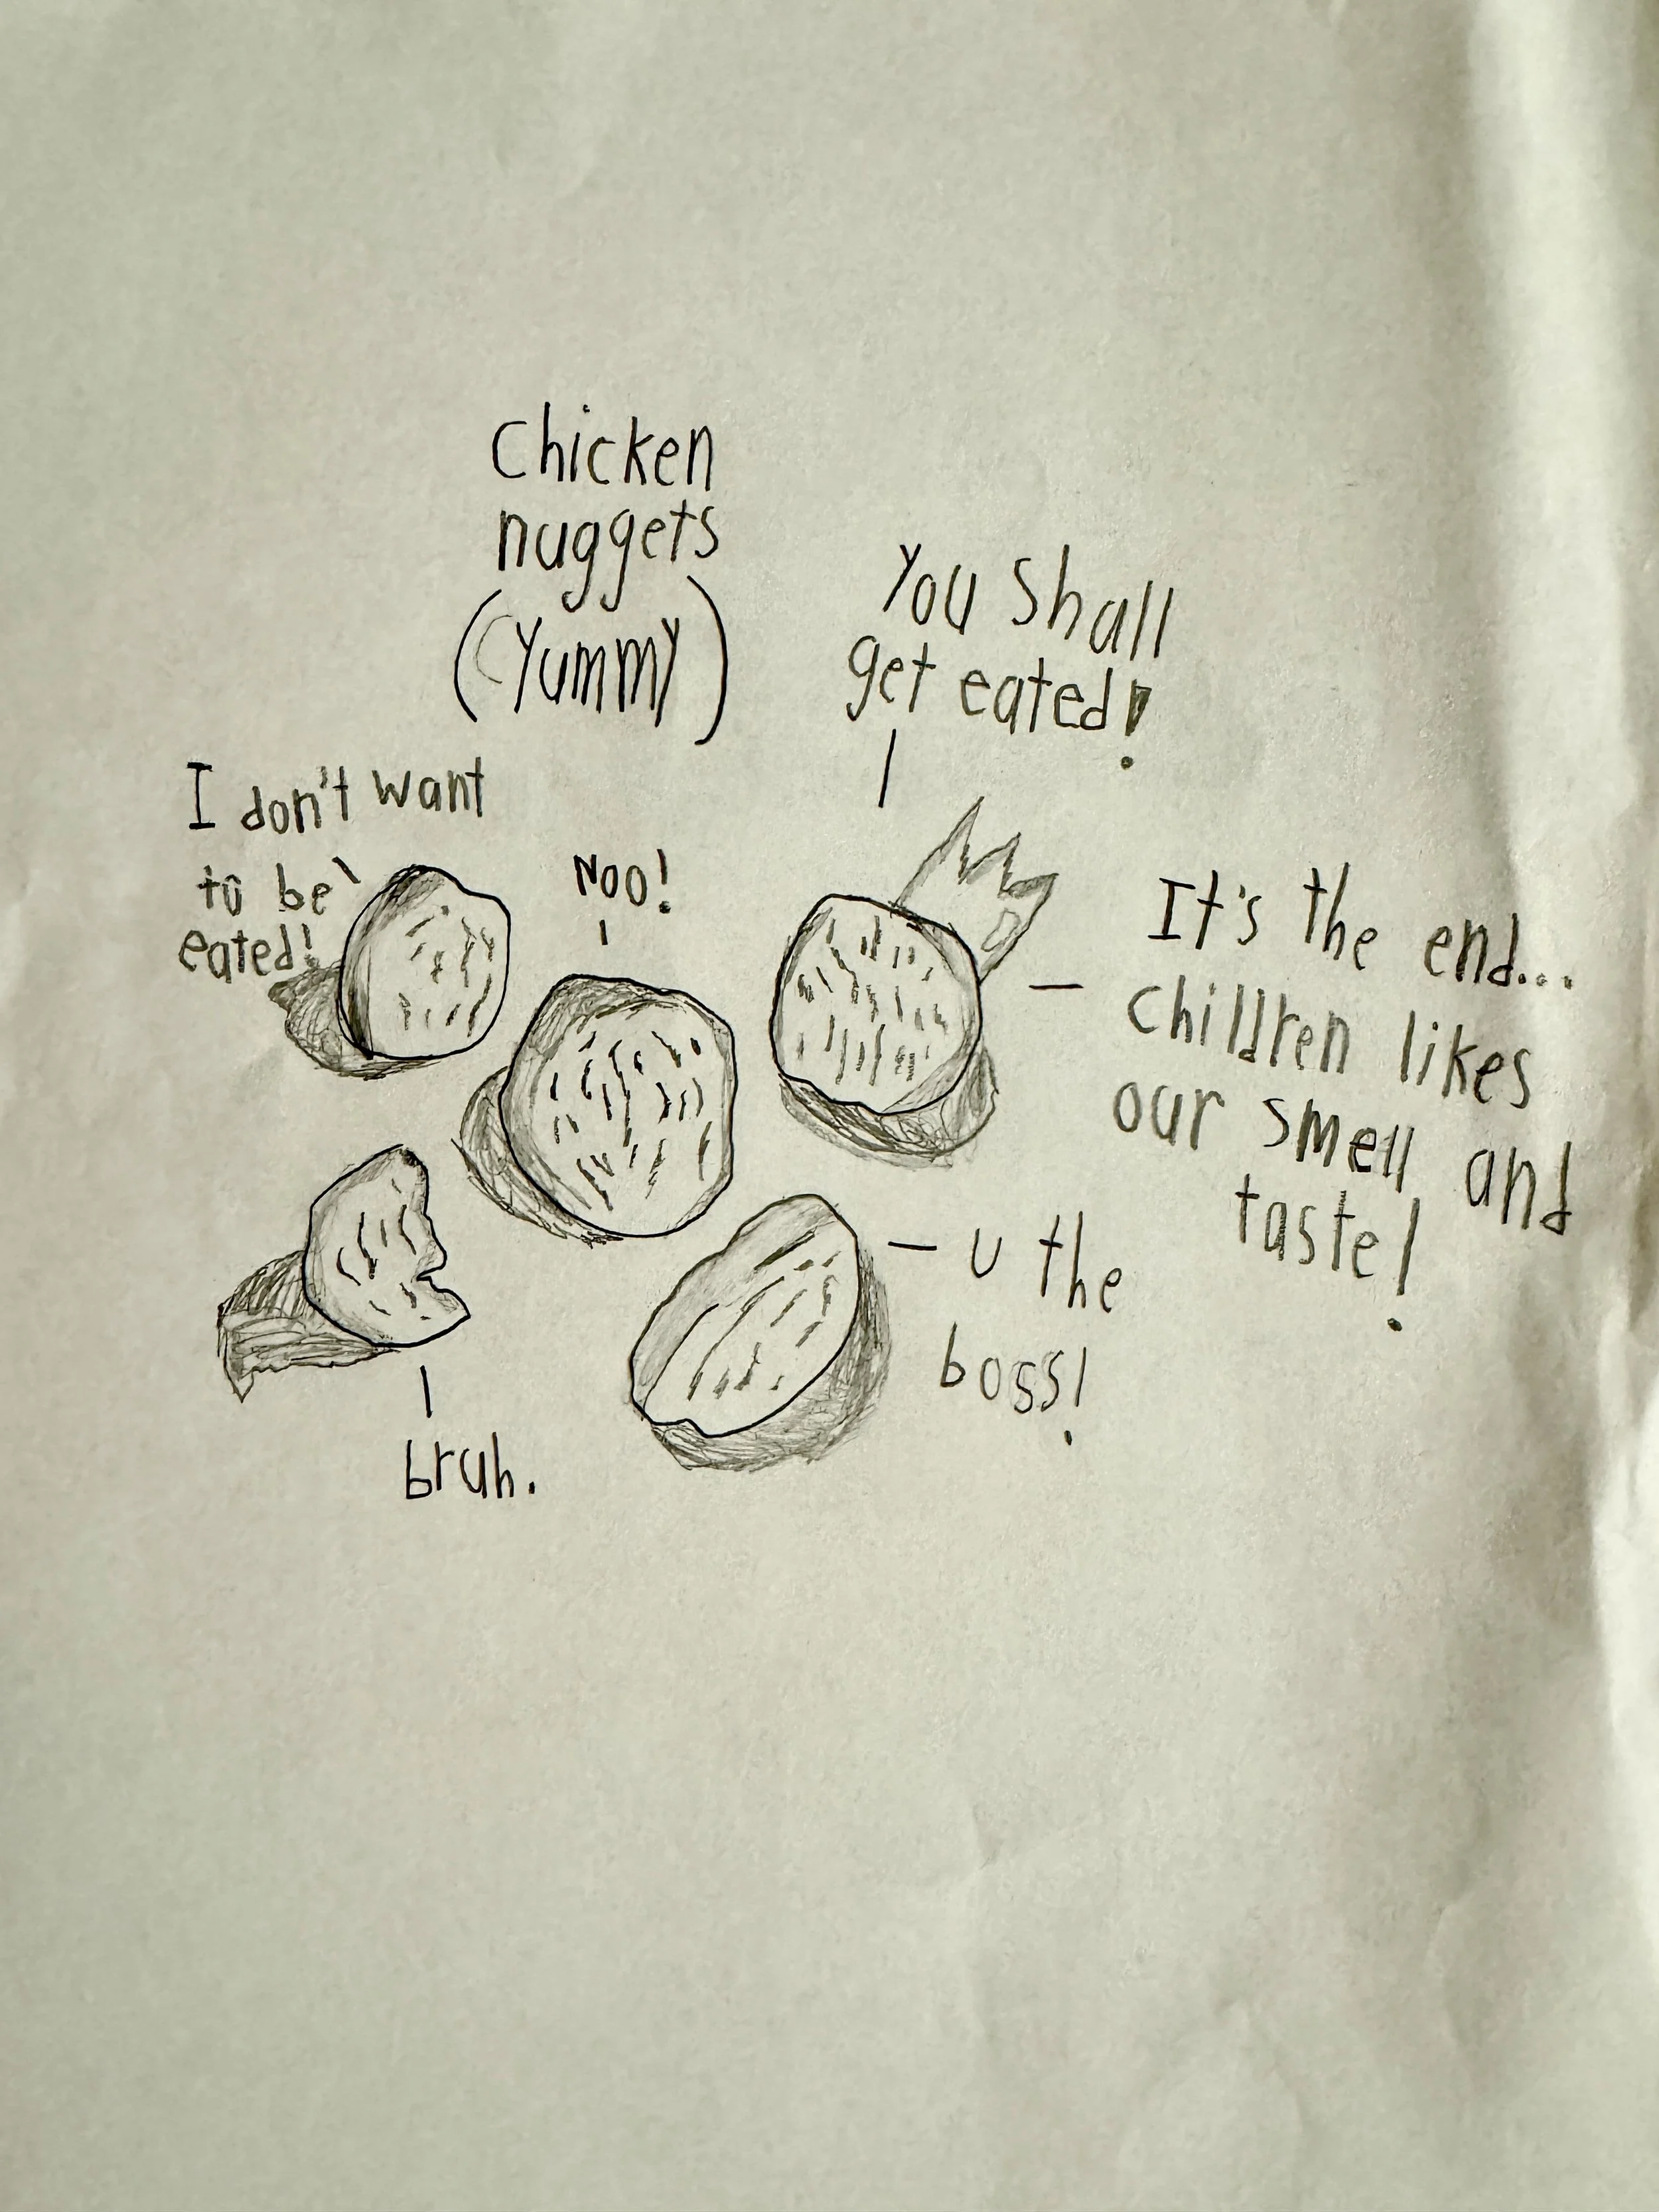 Chicken
nuggets
(Yummy)
You shall
get eated!
I don't want
to be
eated!
Noo!
It's the end...
children likes
our smell and
taste!
U the
boss!
bruh.